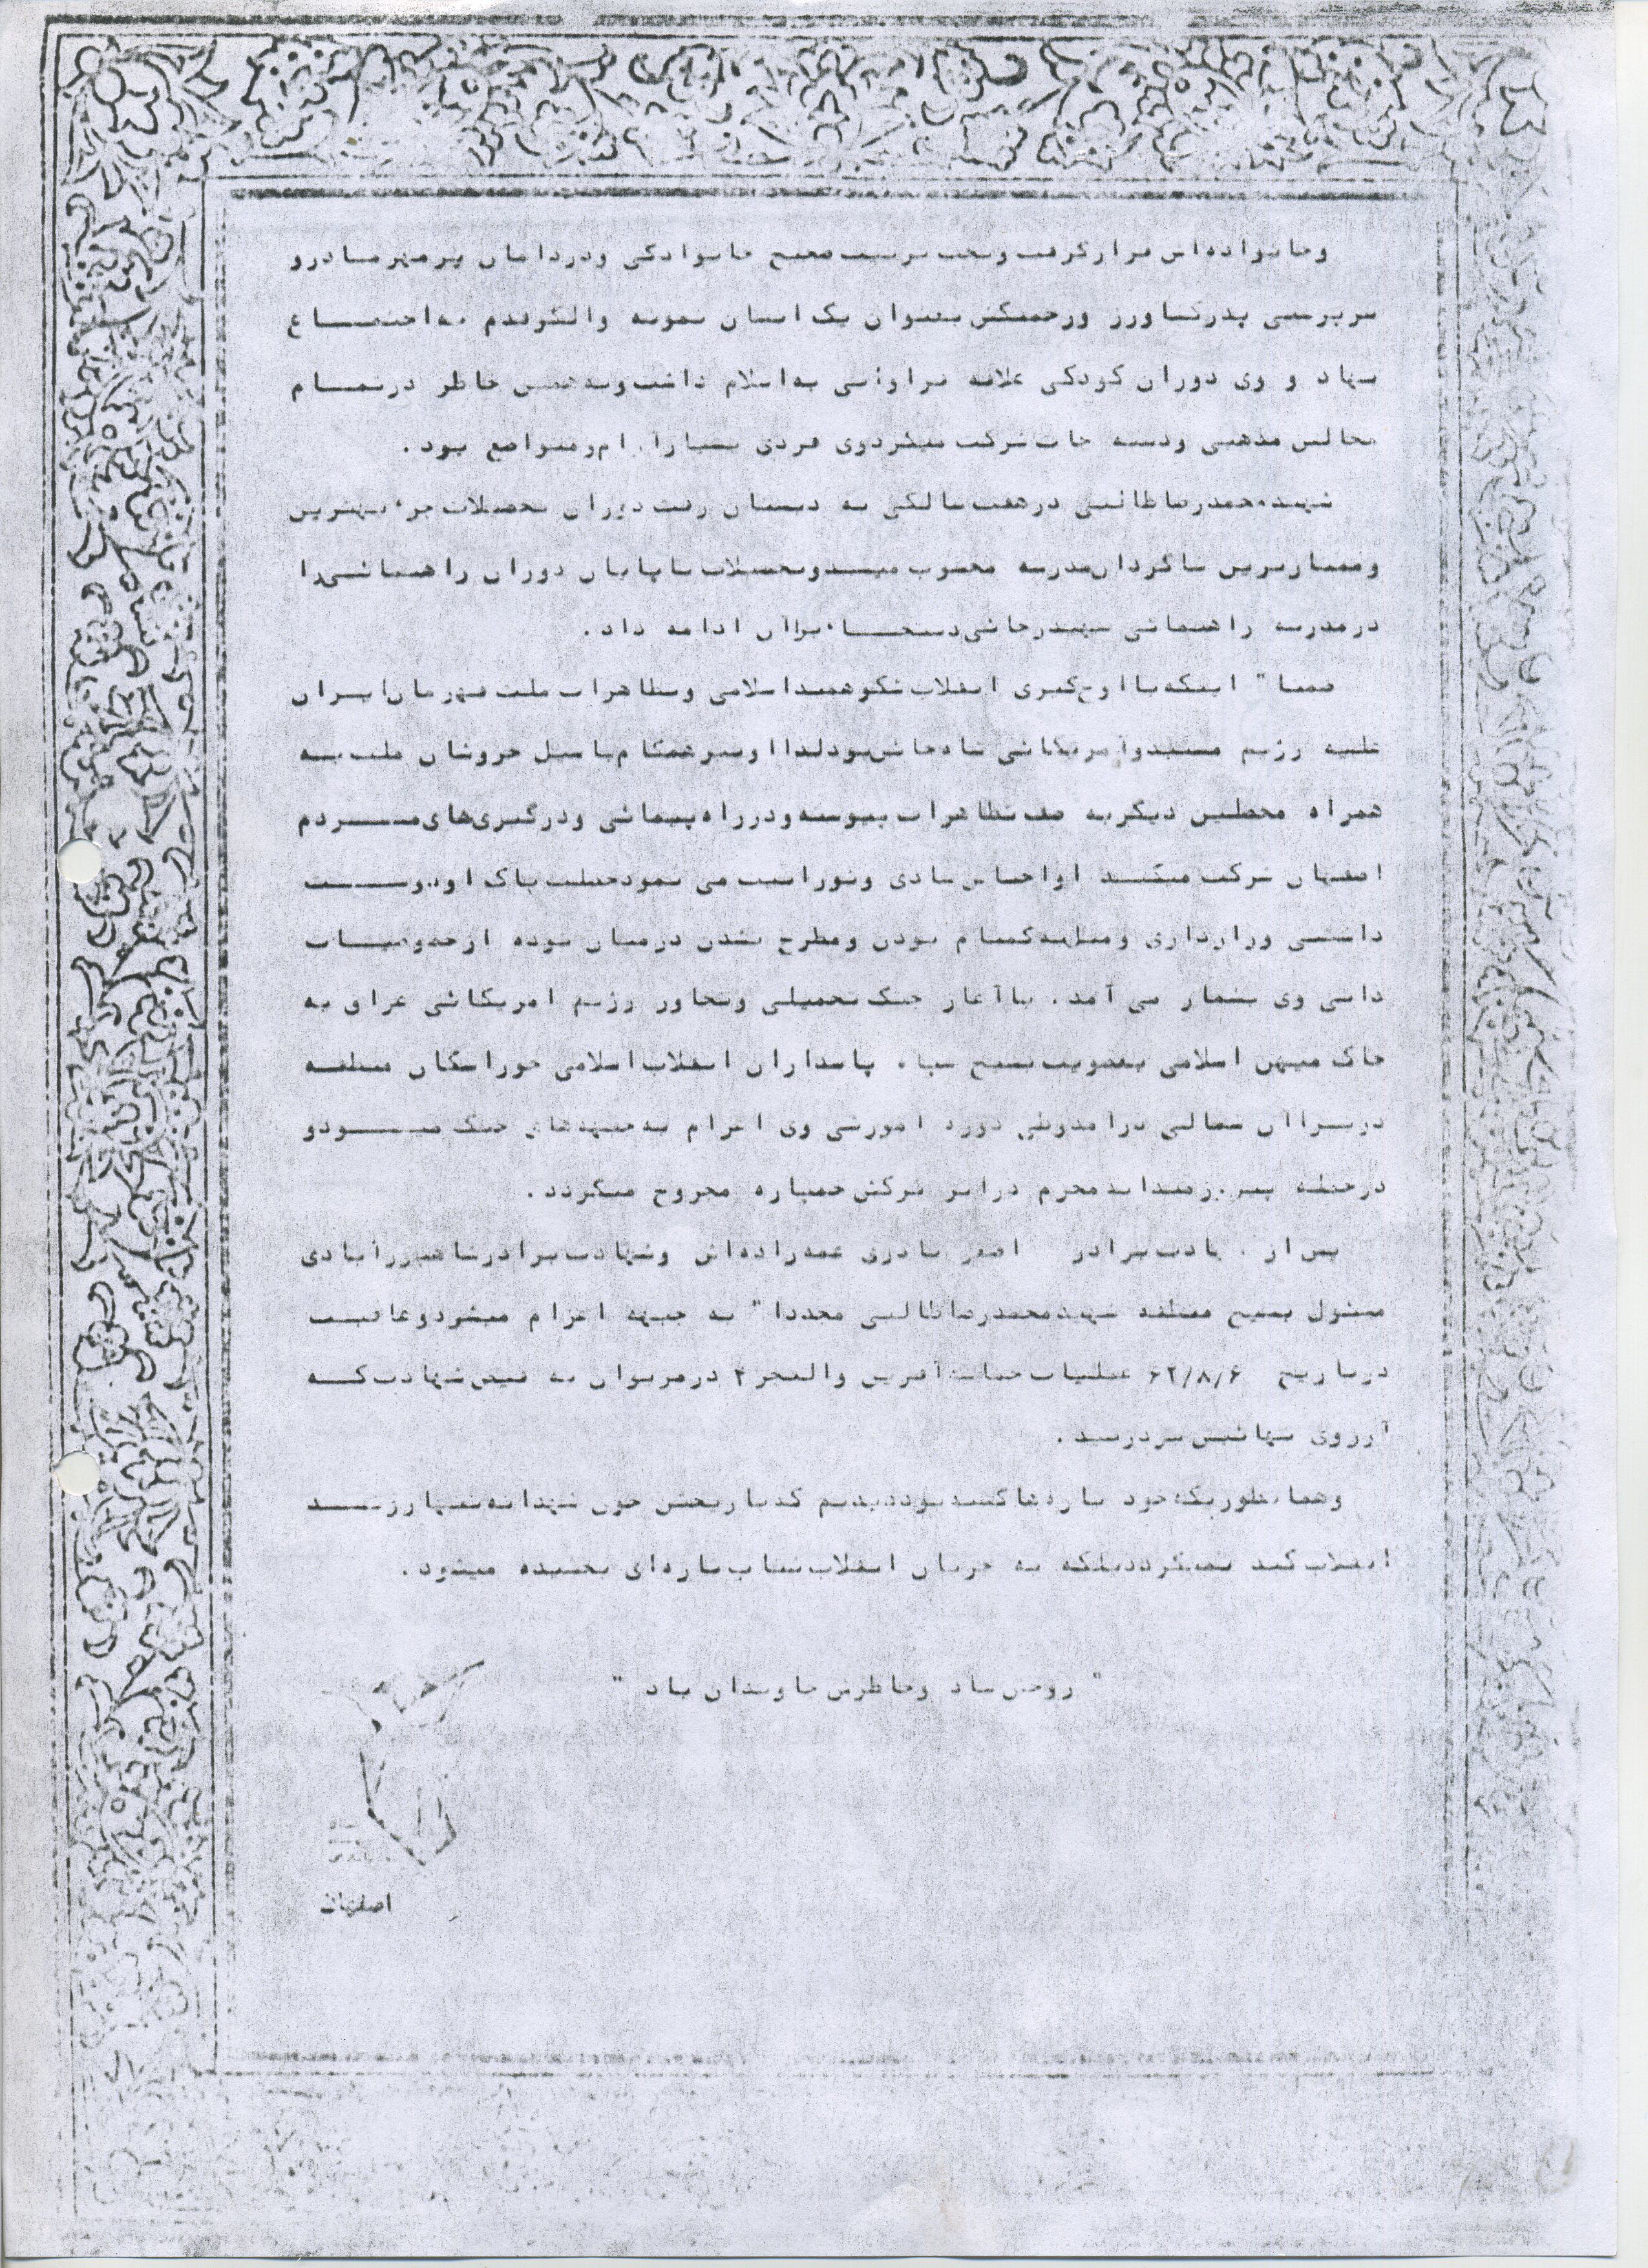 وخانواده‌اش قرارگرفت وتحت تربیت صحیح خانوادگی ودردامان پرمهرمادرو
سرپرستی پدرکشاورز وزحمتکش بعنوان یک انسان نمونه والگوقدم به‌اجتمـــاع
نهاد و وی دوران کودکی علاقه فراوانی به‌اسلام داشت‌وبه‌همین خاطر درتمــام
مجالس مذهبی ودسته جات‌شرکت میکردوی فردی بسیارآرام‌ومتواضع بود.
شهیدمحمدرضاطالبی درهفت‌سالگی به دبستان رفت‌دوران تحصیلات جزء بهترین
وممتازترین شاگردان‌مدرسه محسوب میشدوتحصیلات تاپایان دوران راهنمائی‌را
درمدرسه راهنمائی شهیدرجائی ادامه داد.
ضمنا" اینکه‌بااوج‌گیری انقلاب‌شکوهمنداسلامی وتظاهرات ملت قهرمان‌ایران
علیه رژیم آمریکائی شاه‌خائن‌بودلذااونیزهمگام‌باسیل خروشان ملت‌بـه
همراه محصلین دیگربه صف‌تظاهرات پیوسته‌ودرراه‌پیمائی ودرگیری‌های‌مـــردم
اصفهان شرکت میکنـد اواحساس‌شادی می نمودخصلت‌پاک
داشتنی ورازداری گمنام بودن ومطرح نشدن درمیان توده ازخصوصیــات
ذاتی وی بشمار می آمد. باآغاز جنگ‌تحمیلی وتجاوز رژیم امریکائی عراق به
خاک میهن اسلامی بعضویت‌بسیج سپاه پاسداران انقلاب‌اسلامی خوراسگان منطقــه
شمالی درآمدوطی دوره آموزشی وی اعزام به‌جبهه‌های جنگ میـــشودو
درحمله محرم دراثر ترکش‌خمپاره مجروح میگردد.
پس‌از شهادت‌برادر اصغر نادری عمه‌زاده‌اش وشهادت‌برادر
مسئول بسیج منطقه شهیدمحمدرضاطالبی مجددا" به جبهه اعزام میشودوعاقبت
درتاریخ ۶۲/۸/۶ عملیات حماسه‌آفرین والفجر۴ درمریوان به فیض‌شهادت‌کــه
آرزوی نهائیش‌بردرسید.
وهمانطوریکه‌خود بارهاگفته‌بوددیدیم که‌باریختن خون شهدانه‌تنهارونـــد
انقلاب‌کند نمیگرددبلکه به جریان انقلاب‌شتاب‌تازه‌ای بخشیده میشود.
" روحش‌شاد وخاطرش‌جاویدان باد "
اصفهان